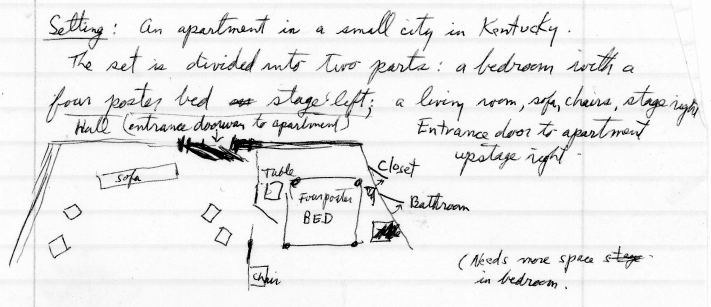 Setting: An apartment in a small city in Kentucky.
The set is divided into two parts: a bedroom with a
four poster bed stage left; a living room, sofa, chairs, stage right
Hall (entrance doorway to apartment)
Entrance door to apartment
upstage right.
sofa
Table
Four poster
BED
Closet
Bathroom
Chair
(Needs more space stage
in bedroom.